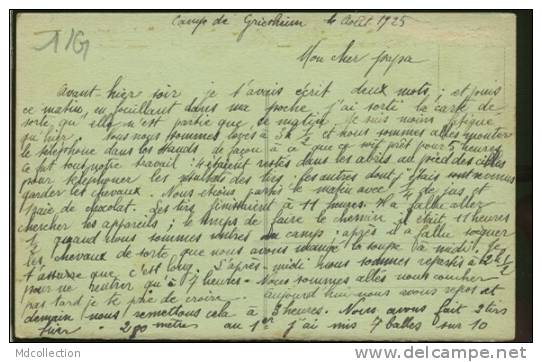 1/G
Camp de Griesheim 6 Août 1925
Mon cher papa
Avant-hier soir je t'avais écrit deux mots, et puis
ce matin, en fouillant dans ma poche j'ai sorti la carte de
sorte, qu'elle n'est partie que ce matin. Je suis moins fatigué
qu'hier. Nous nous sommes levés à 3h ½ et nous sommes allés monter
le téléphone dans les stands, de façon à ce que ce soit prêt pour 5 heures
ce fut tout notre travail: étaient restés dans les abris au pied des cibles
pour téléphoner les résultats des tirs, les autres dont j'étais sont venus
garder les chevaux. Nous étions partis le matin avec ½ de jus et
de chocolat. Les tirs finissaient à 11 heures. Il a fallu aller
chercher les appareils; le temps de faire le chemin, il était 11 heures
½ quand nous sommes rentrés au camp; après il a fallu soigner
les chevaux de sorte que nous avons mangé la soupe à midi. Je
t'assure que c'est long. L'après-midi nous sommes repartis à 12h ½
pour ne rentrer qu'à 7 heures. Nous sommes allés nous coucher
pas tard je te prie de croire. aujourd'hui nous avons repos et
demain nous remettons cela à 3 heures. Nous avons fait 2 tirs
hier. 200 mètres au 1er j'ai mis 7 balles sur 10
MdCollection
delcampe.net